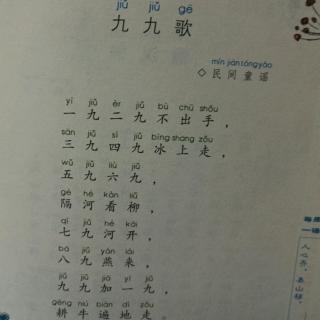 jiǔ jiǔ gē
九九歌
mín jiān tóng yáo
◇民间童谣
yī jiǔ èr jiǔ bù chū shǒu
一九二九不出手，
sān jiǔ sì jiǔ bīng shang zǒu
三九四九冰上走，
wǔ jiǔ liù jiǔ
五九六九，
gé hé kàn liǔ
隔河看柳，
qī jiǔ hé kāi
七九河开，
bā jiǔ yàn lái
八九燕来，
jiǔ jiǔ jiā yī jiǔ
九九加一九，
gēng niú biàn dì zǒu
耕牛遍地走。
人心齐，泰山移。